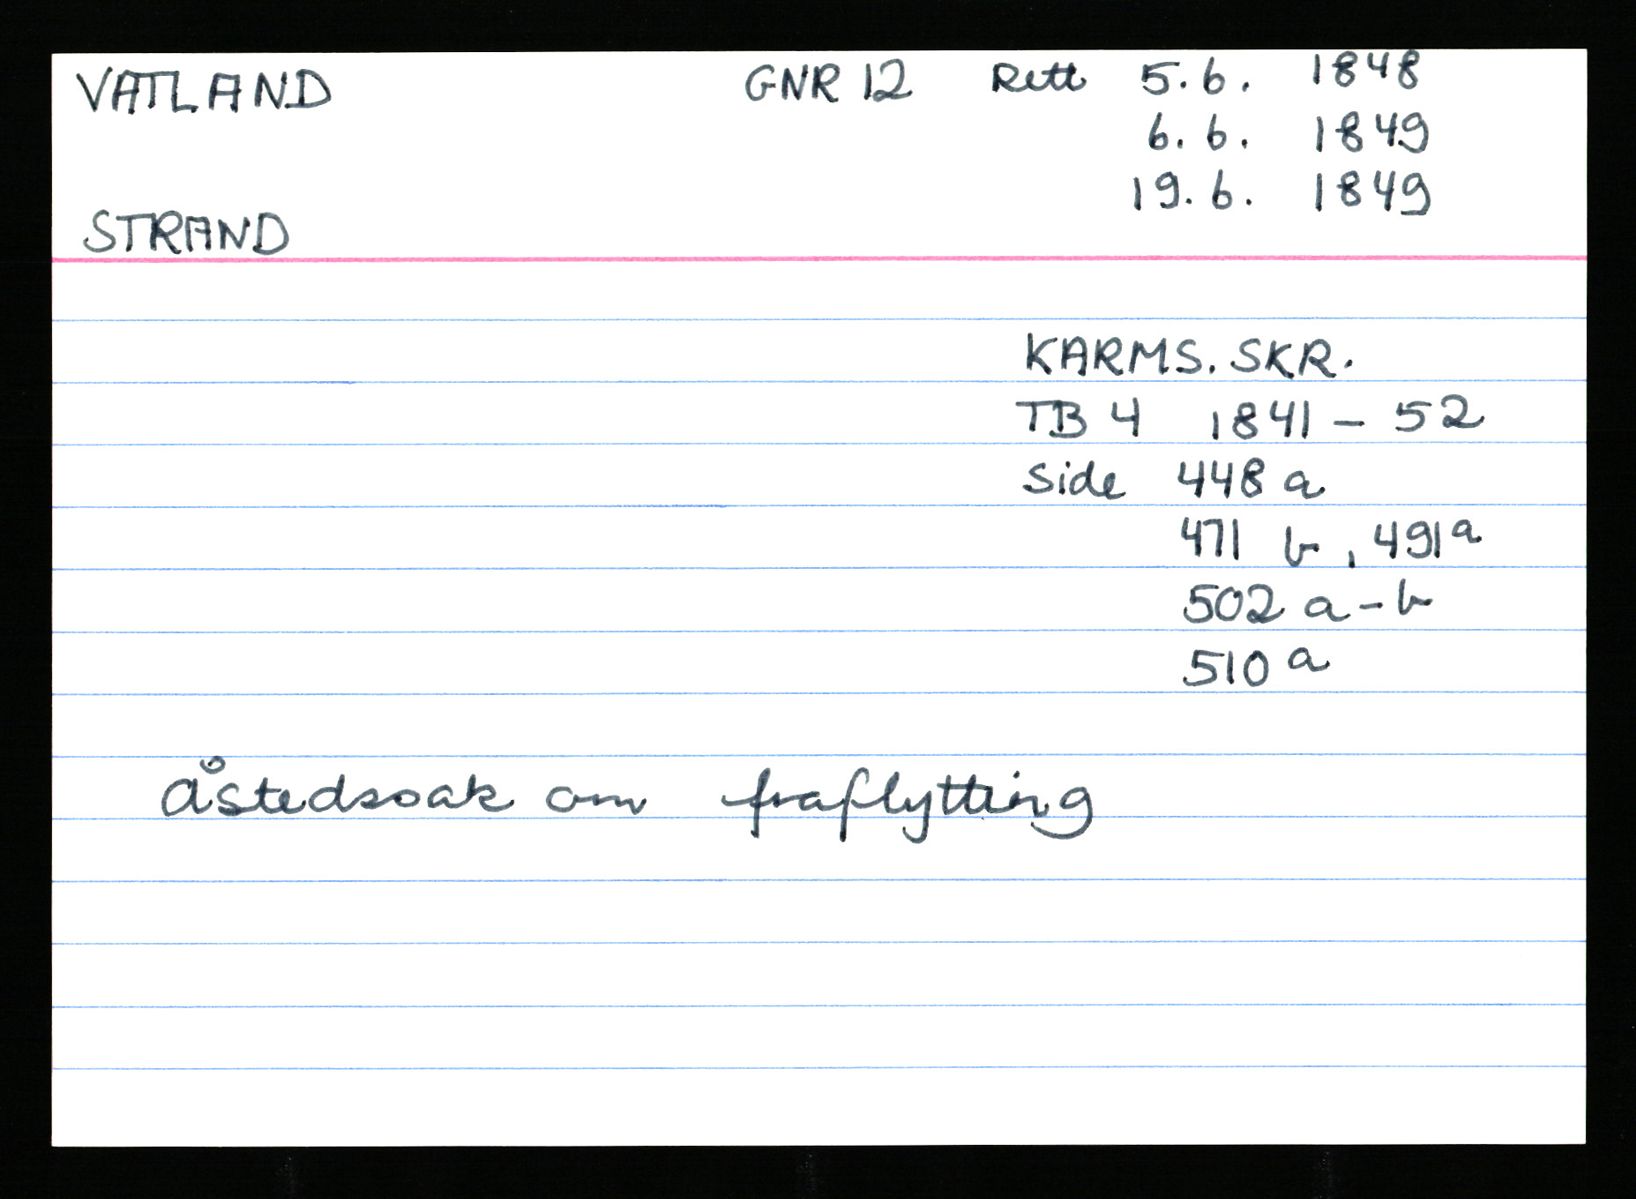 VATLAND GNR 12 Rett 5.6. 1848
6.6. 1849
19.6. 1849
STRAND
KARMS. SKR.
TB 4 1841 - 52
Side 448 a
471 b, 491 a
502 a - b
510 a
åstedsoak om fraflytting